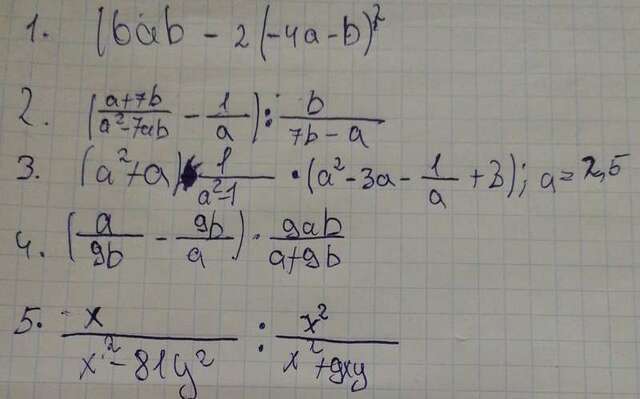 1. (6ab - 2(-4a - b)²
2. ((a+7b)/(a²-7ab) - 1/a) : b/(7b - a)
3. (a²+a) 1/(a²-1) · (a² - 3a - 1/a + 3); a = 2,5
4. (a/9b - 9b/a) · 9ab/(a+9b)
5. x/(x² - 81y²) : x²/(x² + 9xy)